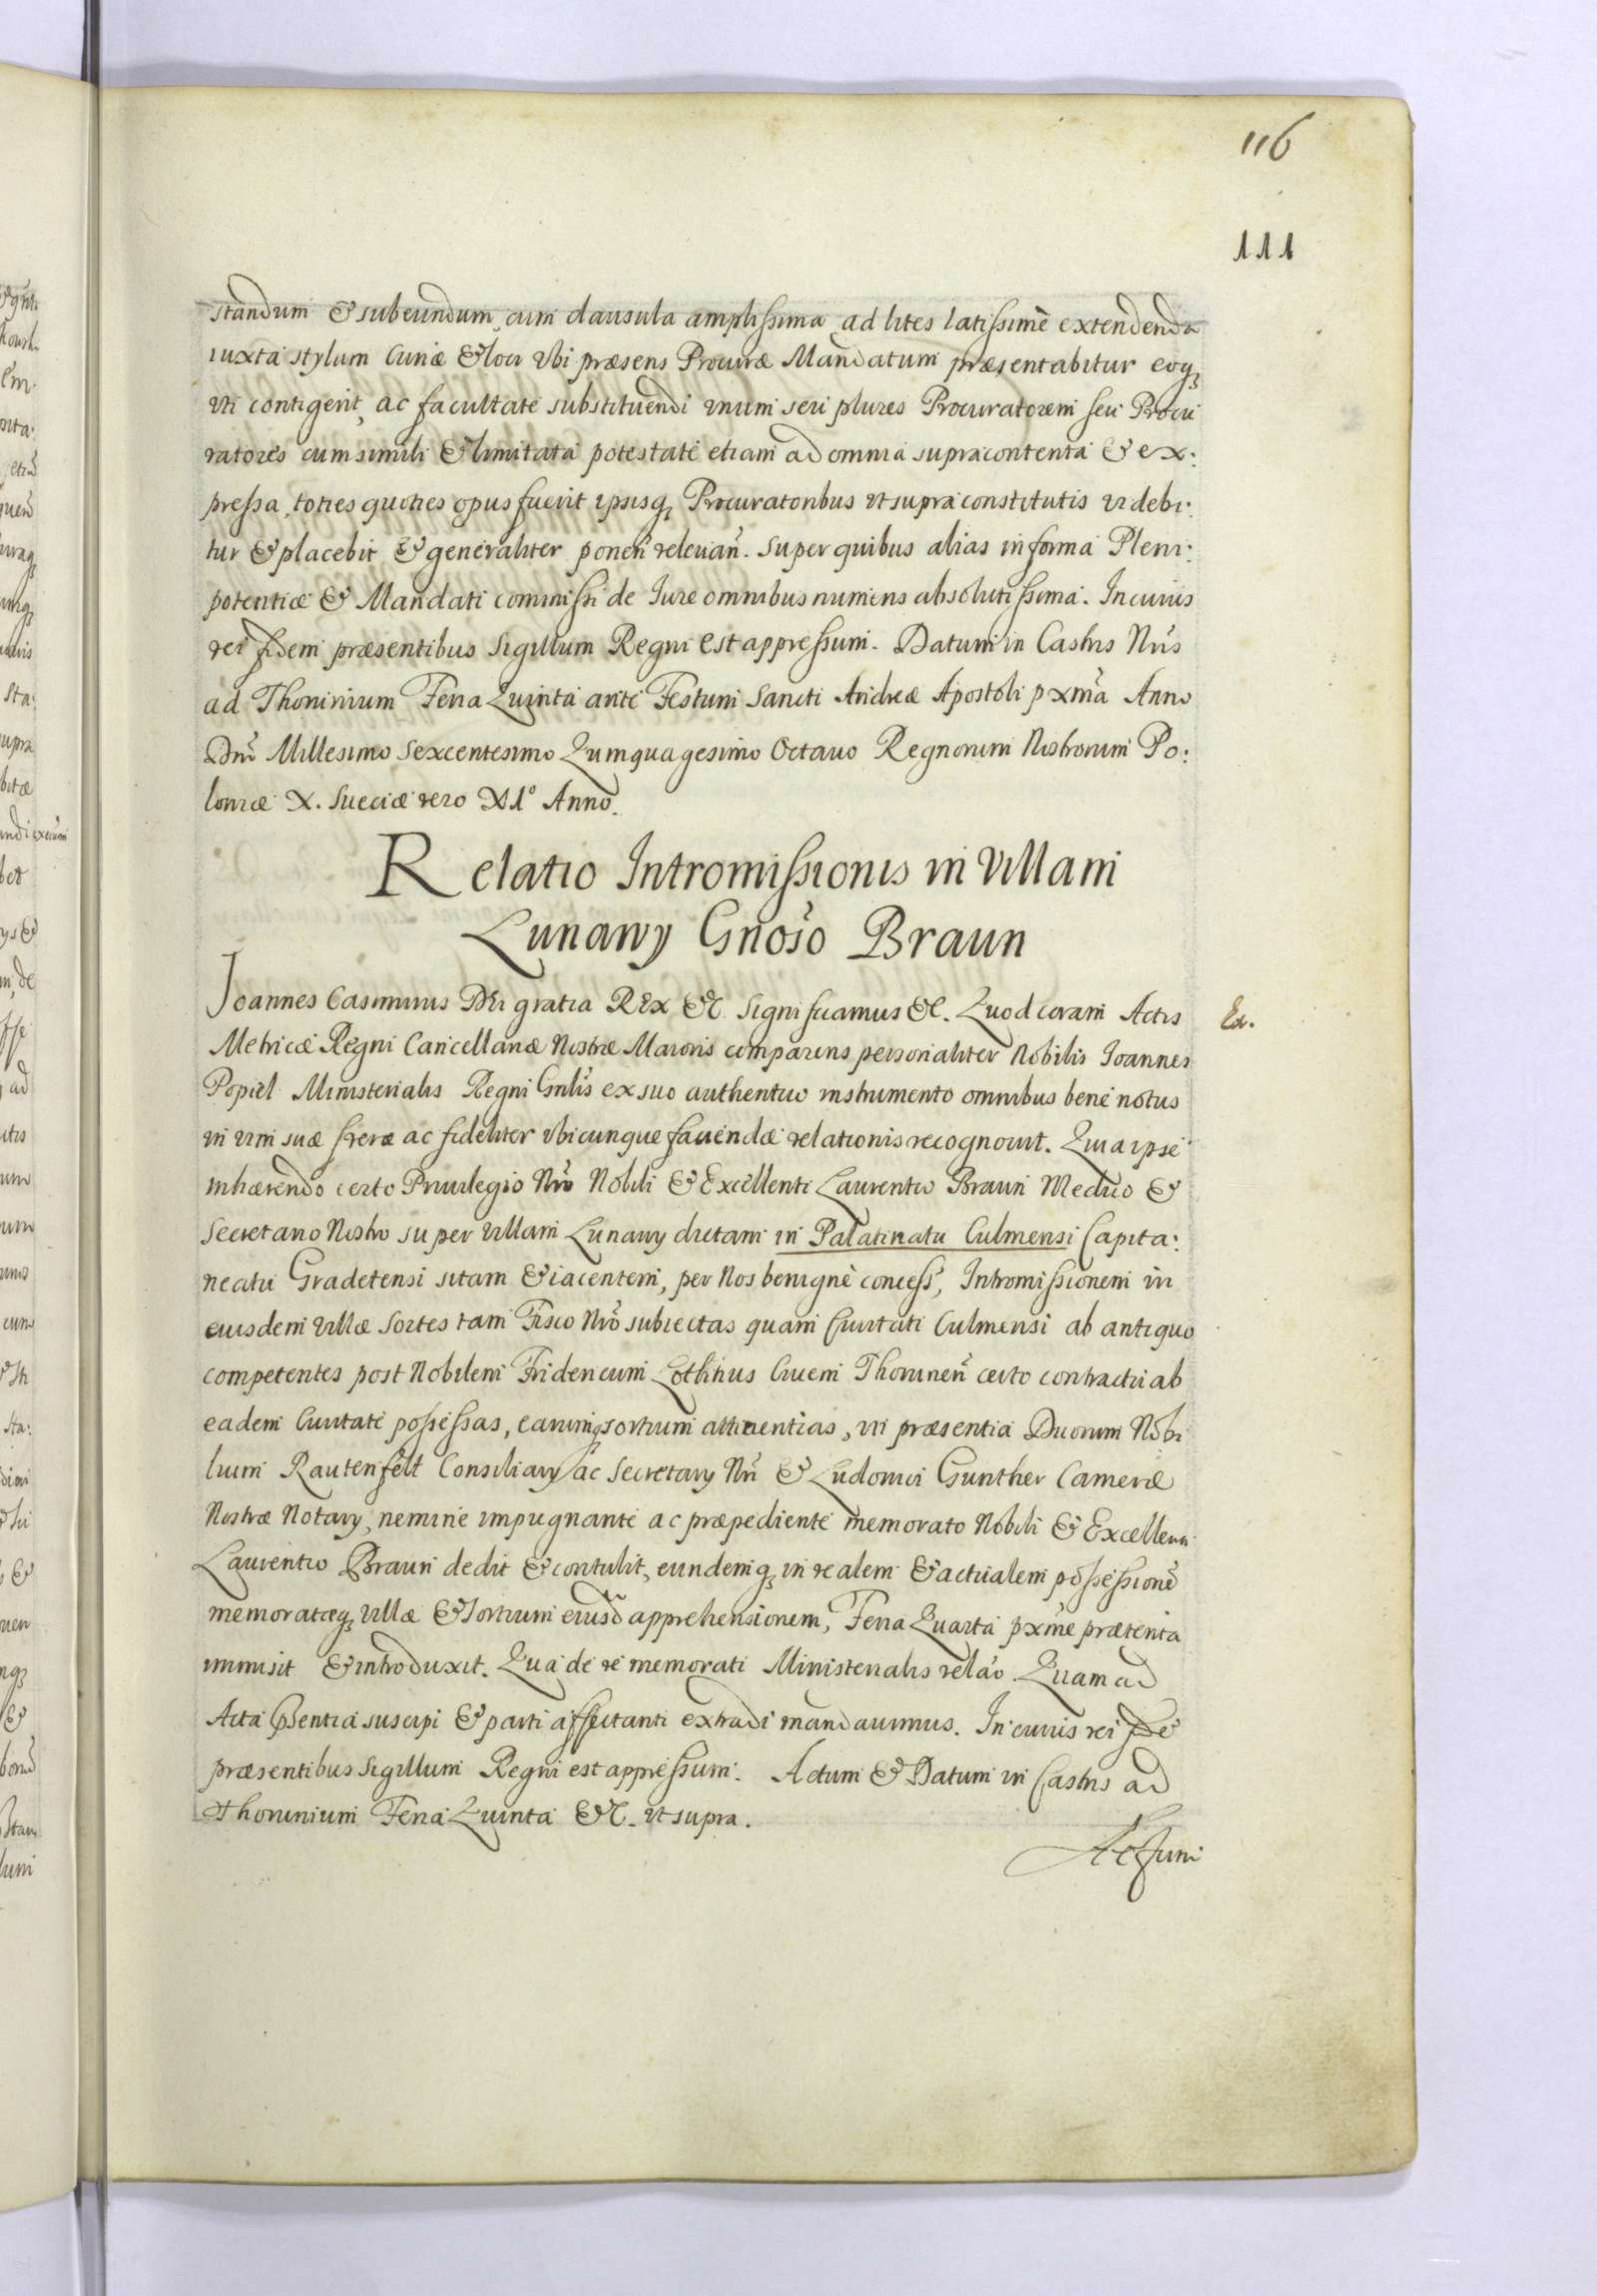 116
111
standum & subeundum, cum clausula amplissima ad lites latissimè extendenda
iuxta stylum Curiæ & loci Vbi præsens Procuræ Mandatum præsentabitur eoq3
vti contigerit, ac facultate substituendi vnum seu plures Procuratorem seu Procu
ratores cum simili & limitata potestate etiam ad omnia supracontenta & ex:
pressa, toties quoties opus fuerit ipsisq3 Procuratoribus vt supra constitutis videbi:
tur & placebit & generaliter ponen̄ releuan̄. Super quibus alias in forma Pleni:
potentiæ & Mandati commissi de Iure omnibus numeris absolutissima. In cuius
rei fidem præsentibus Sigillum Regni est appressum. Datum in Castris Nr̄is
ad Thorunium Feria Quinta ante Festum Sancti Andreæ Apostoli pxm̄a Anno
Dn̄i Millesimo Sexcentesimo Quinquagesimo Octauo Regnorum Nostrorum Po:
loniæ X. Sueciæ vero XI° Anno.
Relatio Intromissionis in Villam
Lunawy Gnōso Braun
Joannes Casimirus DEi gratia REx &c. Significamus &c. Quod coram Actis
Ex.
Metricæ Regni Cancellariæ Nostræ Maioris comparens personaliter Nobilis Joannes
Popiel Ministerialis Regni Gnl̄is ex suo authentico instrumento omnibus bene notus
in vim suæ veræ ac fideliter vbicunque faciendæ relationis recognouit. Quia ipse
inhærendo certo Priuilegio Nr̄o Nobili & Excellenti Laurentio Braun Medico &
Secretario Nostro super Villam Lunawy dictam in Palatinatu Culmensi Capita:
neatu Gradetensi sitam & iacentem, per Nos benignè concess̄, Intromissionem in
eiusdem Villæ Sortes tam Fisco Nr̄o subiectas quam Ciuitati Culmensi ab antiquo
competentes post Nobilem Fridericum Ciuem Thorunen̄ certo contractu ab
eadem Ciuitate possessas, earumq3 sortium attinentias, in præsentia Duorum Nobi
lium Rautenfelt Consiliarij ac Secretarij Nr̄i & Ludouici Gunther Cameræ
Nostræ Notarij, nemine impugnante ac præpediente memorato Nobili & Excellenti
Laurentio Braun dedit & contulit, eundemq3 in realem & actualem possessionē
memoratæq3 Villæ & Sortium eiusd̄ apprehensionem, Feria Quarta pxm̄e præterita
immisit & introduxit. Qua de re memorati Ministerialis relāo. Quam ad
Acta pr̄sentia suscipi & parti affectanti extradi mandauimus. In cuius rei fidē
præsentibus Sigillum Regni est appressum. Actum & Datum in Castris ad
Thorunium Feria Quinta &c. vt supra.
Actum